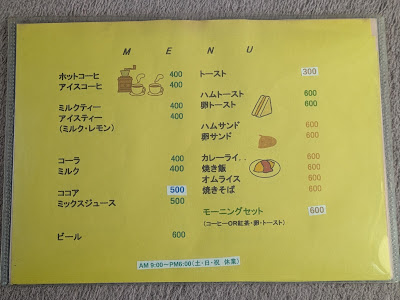 MENU
ホットコーヒ 400
アイスコーヒ 400
ミルクティー 400
アイスティー 400
(ミルク・レモン)
コーラ 400
ミルク 400
ココア 500
ミックスジュース 500
ビール 600
トースト 300
ハムトースト 600
卵トースト 600
ハムサンド 600
卵サンド 600
カレーライ.. 600
焼き飯 600
オムライス 600
焼きそば 600
モーニングセット 600
(コーヒーOR紅茶・卵・トースト)
AM 9:00~PM6:00(土・日・祝 休業)